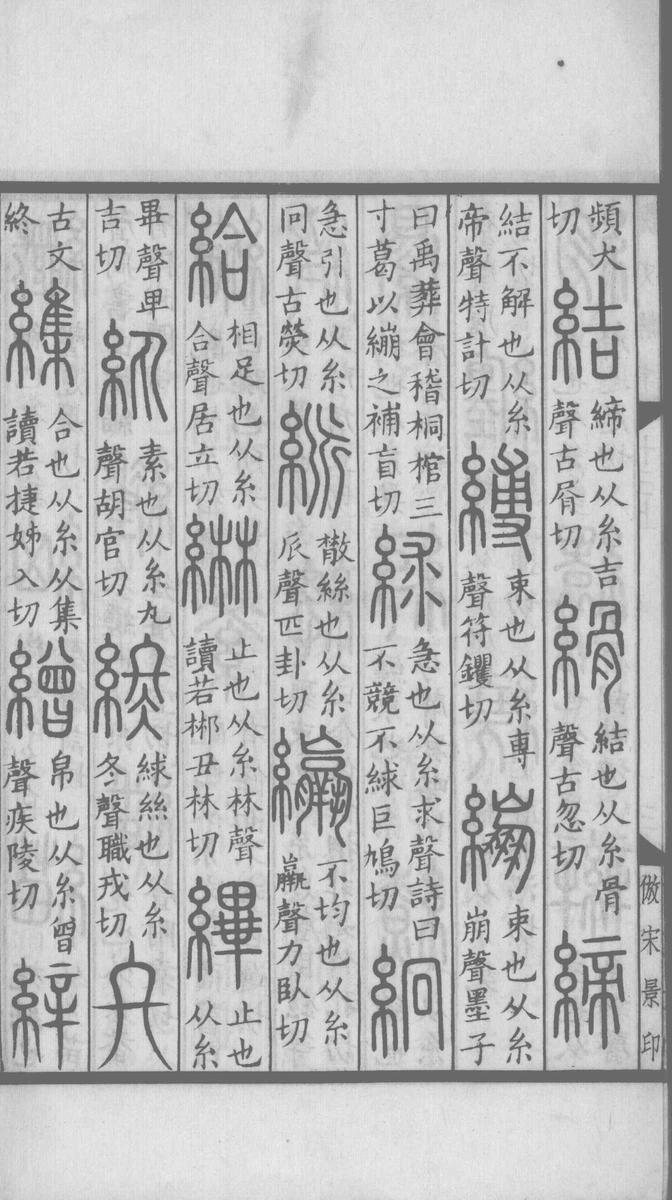 頻犬切結締也从糸吉聲古屑切縎結也从糸骨聲古忽切締
結不解也从糸帝聲特計切縛束也从糸尃聲符钁切繃束也从糸崩聲墨子
曰禹葬會稽桐棺三寸葛以繃之補盲切絿急也从糸求聲詩曰不競不絿巨鳩切絅
急引也从糸冋聲古熒切𥿯散絲也从糸𠂢聲匹卦切䌴不均也从糸羸聲力臥切
給相足也从糸合聲居立切綝止也从糸林聲讀若郴丑林切縪止也从糸
畢聲卑吉切紈素也从糸丸聲胡官切終絿絲也从糸冬聲職戎切
古文終䌖合也从糸从集讀若捷姊入切繒帛也从糸曾聲疾陵切縡
倣宋景印